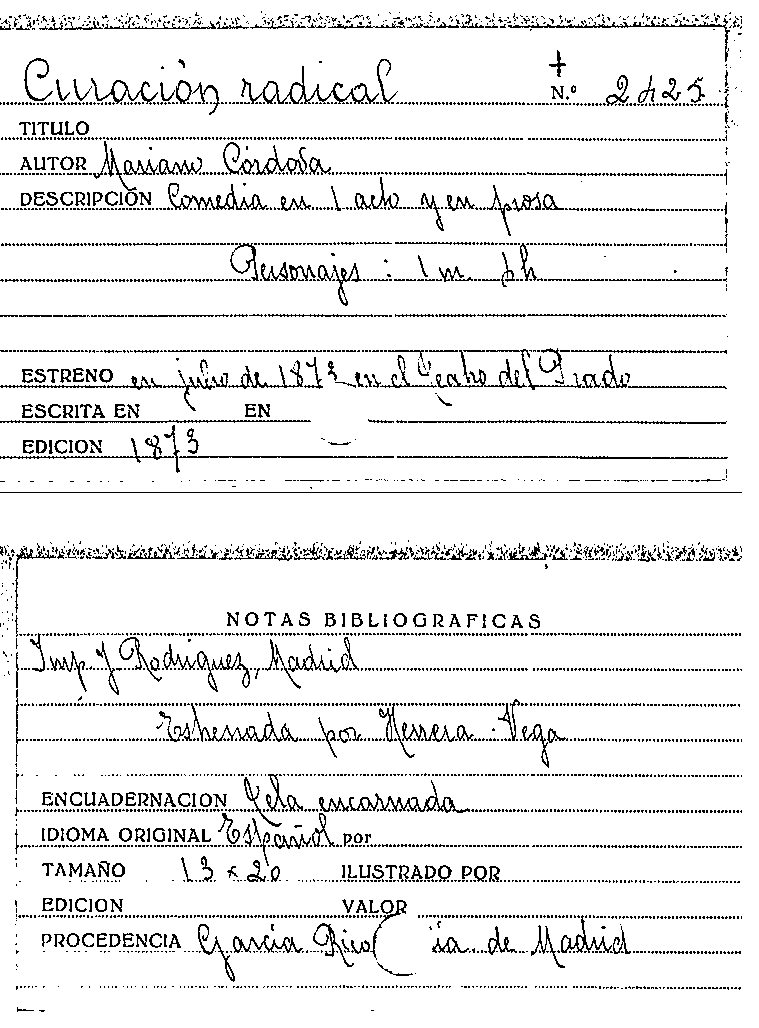 Curación radical
+
N.º 2425
TITULO
AUTOR Mariano Córdova
DESCRIPCIÓN Comedia en 1 acto y en prosa
Personajes : 1 m. 1 h
ESTRENO en julio de 1873 en el Teatro del Prado
ESCRITA EN EN
EDICION 1873
NOTAS BIBLIOGRAFICAS
Imp. J Rodriguez, Madrid
Estrenada por Herrera - Vega
ENCUADERNACION Tela encarnada
IDIOMA ORIGINAL Español por
TAMAÑO 13 x 20 ILUSTRADO POR
EDICION VALOR
PROCEDENCIA García Rico ía. de Madrid